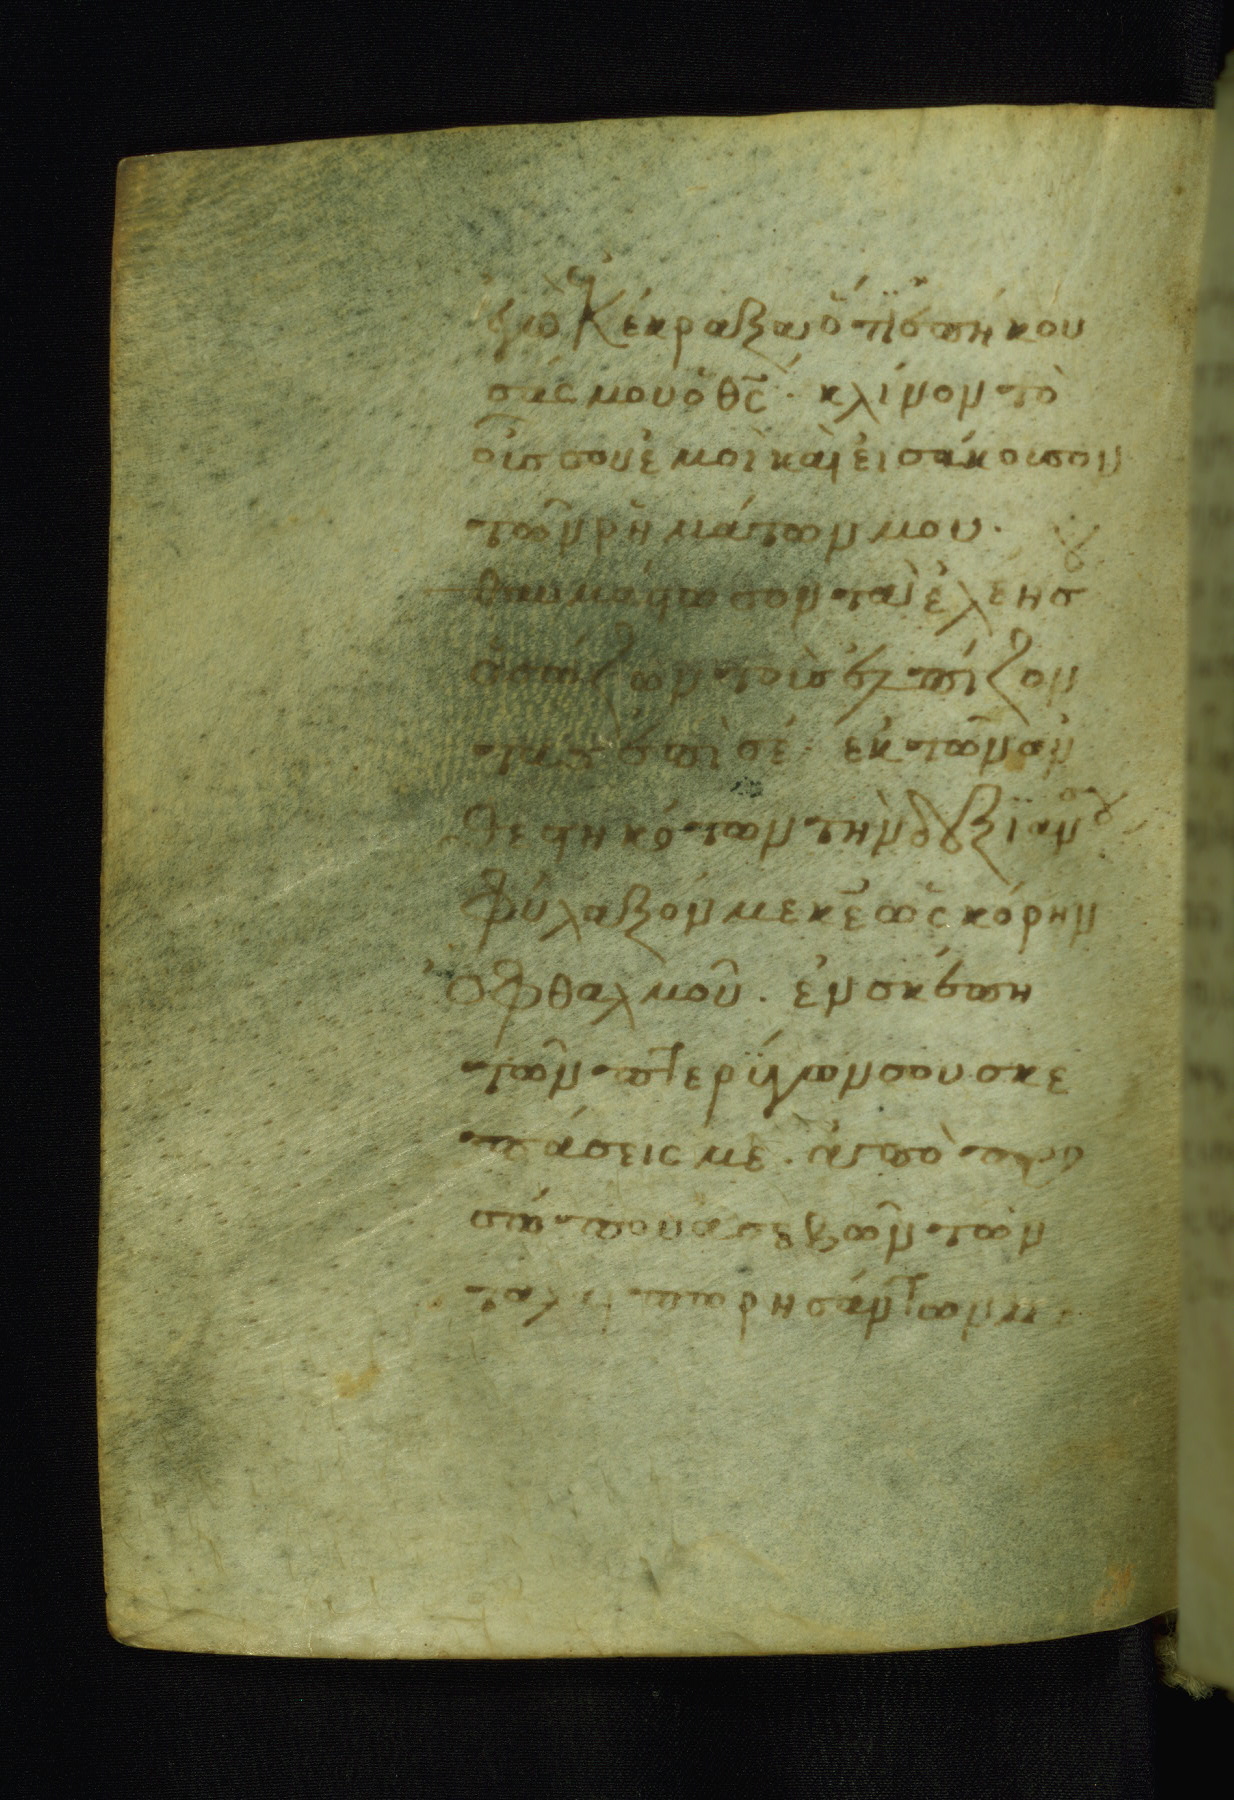 ἐγὼ κέκραξα ὅτι ἐπήκου
σάς μου ὁ θς̄· κλῖνον τὸ
οὖς σου ἐμοὶ καὶ εἰσάκουσον
τῶν ῥημάτων μου·
θαυμάστωσον τὰ ἐλέη σ
ὁ σώζων τοὺς ἐλπίζον
τας ἐπὶ σέ· ἐκ τῶν ἀν
θεστηκότων τῆ δεξιᾶ σου
φύλαξόν με κε ὡς κόρην
ὀφθαλμοῦ· ἐν σκέπη
τῶν πτερύγων σου σκε
πάσεις με· ἀπὸ προ
σώπου ἀσεβῶν τῶν
ταλαιπωρησάντων με·